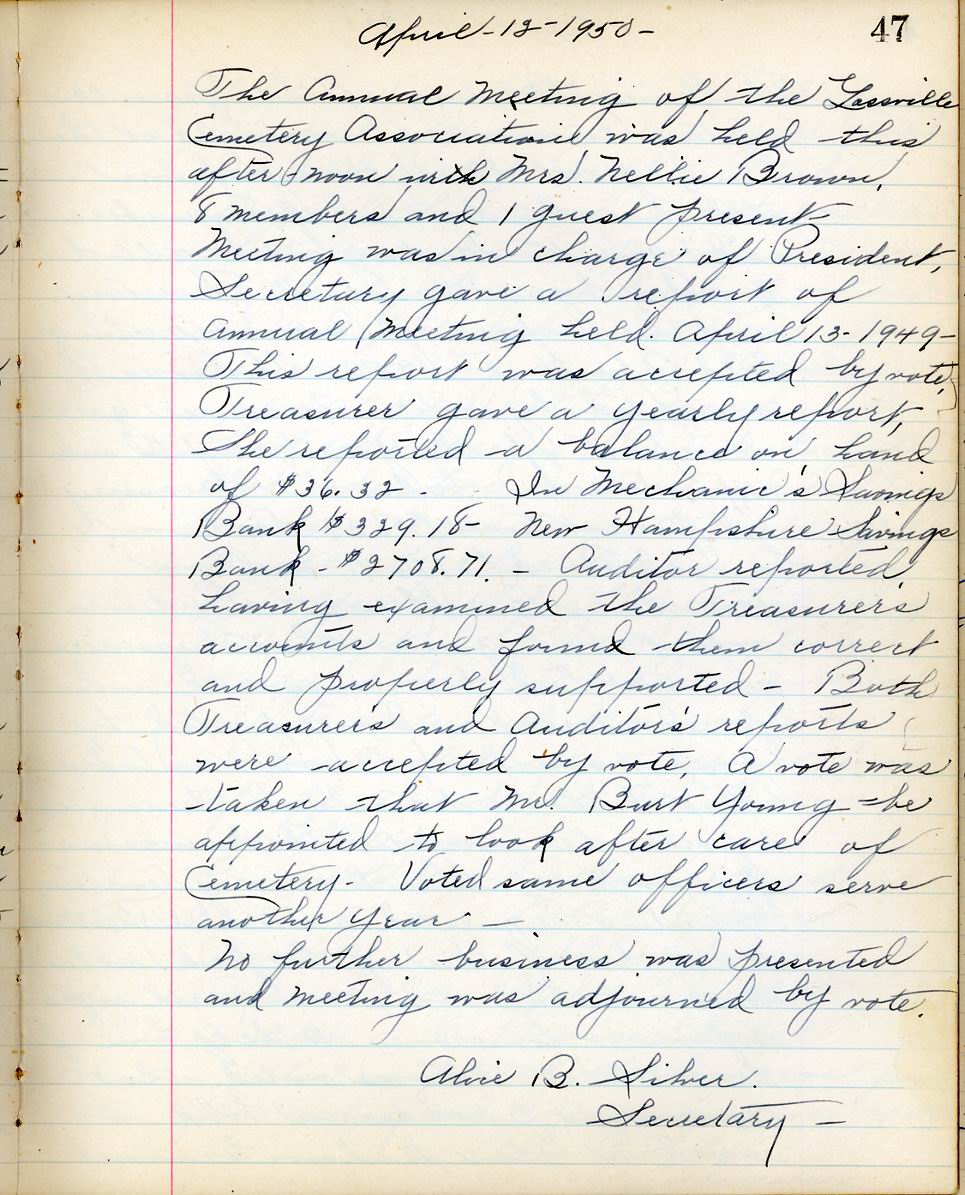 April-12-1950-
47
The Annual Meeting of the Lossville
Cemetery Association was held this
after noon with Mrs. Nellie Brown.
8 members and 1 guest present-
Meeting was in charge of President,
Secretary gave a report of
Annual Meeting held. April 13-1949-
This report was accepted by vote,
Treasurer gave a yearly report,
She reported a balance on hand
of $36.32 - In Mechanic's Savings
Bank $329.18- New Hampshire Savings
Bank - $2708.71. - Auditor reported
having examined the Treasurer's
accounts and found them correct
and properly supported - Both
Treasurer's and Auditor's reports
were accepted by vote, A vote was
taken that Mr. Burt Young be
appointed to look after care of
Cemetery- Voted same officers serve
another year -
No further business was presented
and meeting was adjourned by vote.
Alice B. Silver.
Secretary -